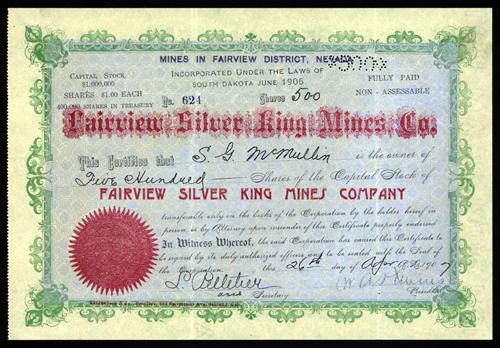 MINES IN FAIRVIEW DISTRICT, NEVADA
INCORPORATED UNDER THE LAWS OF
SOUTH DAKOTA JUNE 1906.
CAPITAL STOCK
$1,000,000
SHARES $1.00 EACH
400,000 SHARES IN TREASURY
FULLY PAID
NON-ASSESSABLE
No. 624 Shares 500
Fairview Silver King Mines Co.
This Certifies that S. G. McMullin is the owner of
Five Hundred Shares of the Capital Stock of
FAIRVIEW SILVER KING MINES COMPANY
transferable only on the books of the Corporation by the holder hereof in
person or by Attorney upon surrender of this Certificate properly endorsed
In Witness Whereof, the said Corporation has caused this Certificate to
be signed by its duly authorized officers and to be sealed with the Seal of
the Corporation this 26th day of Apr A.D. 1907
L. Pelletier
Secretary
President